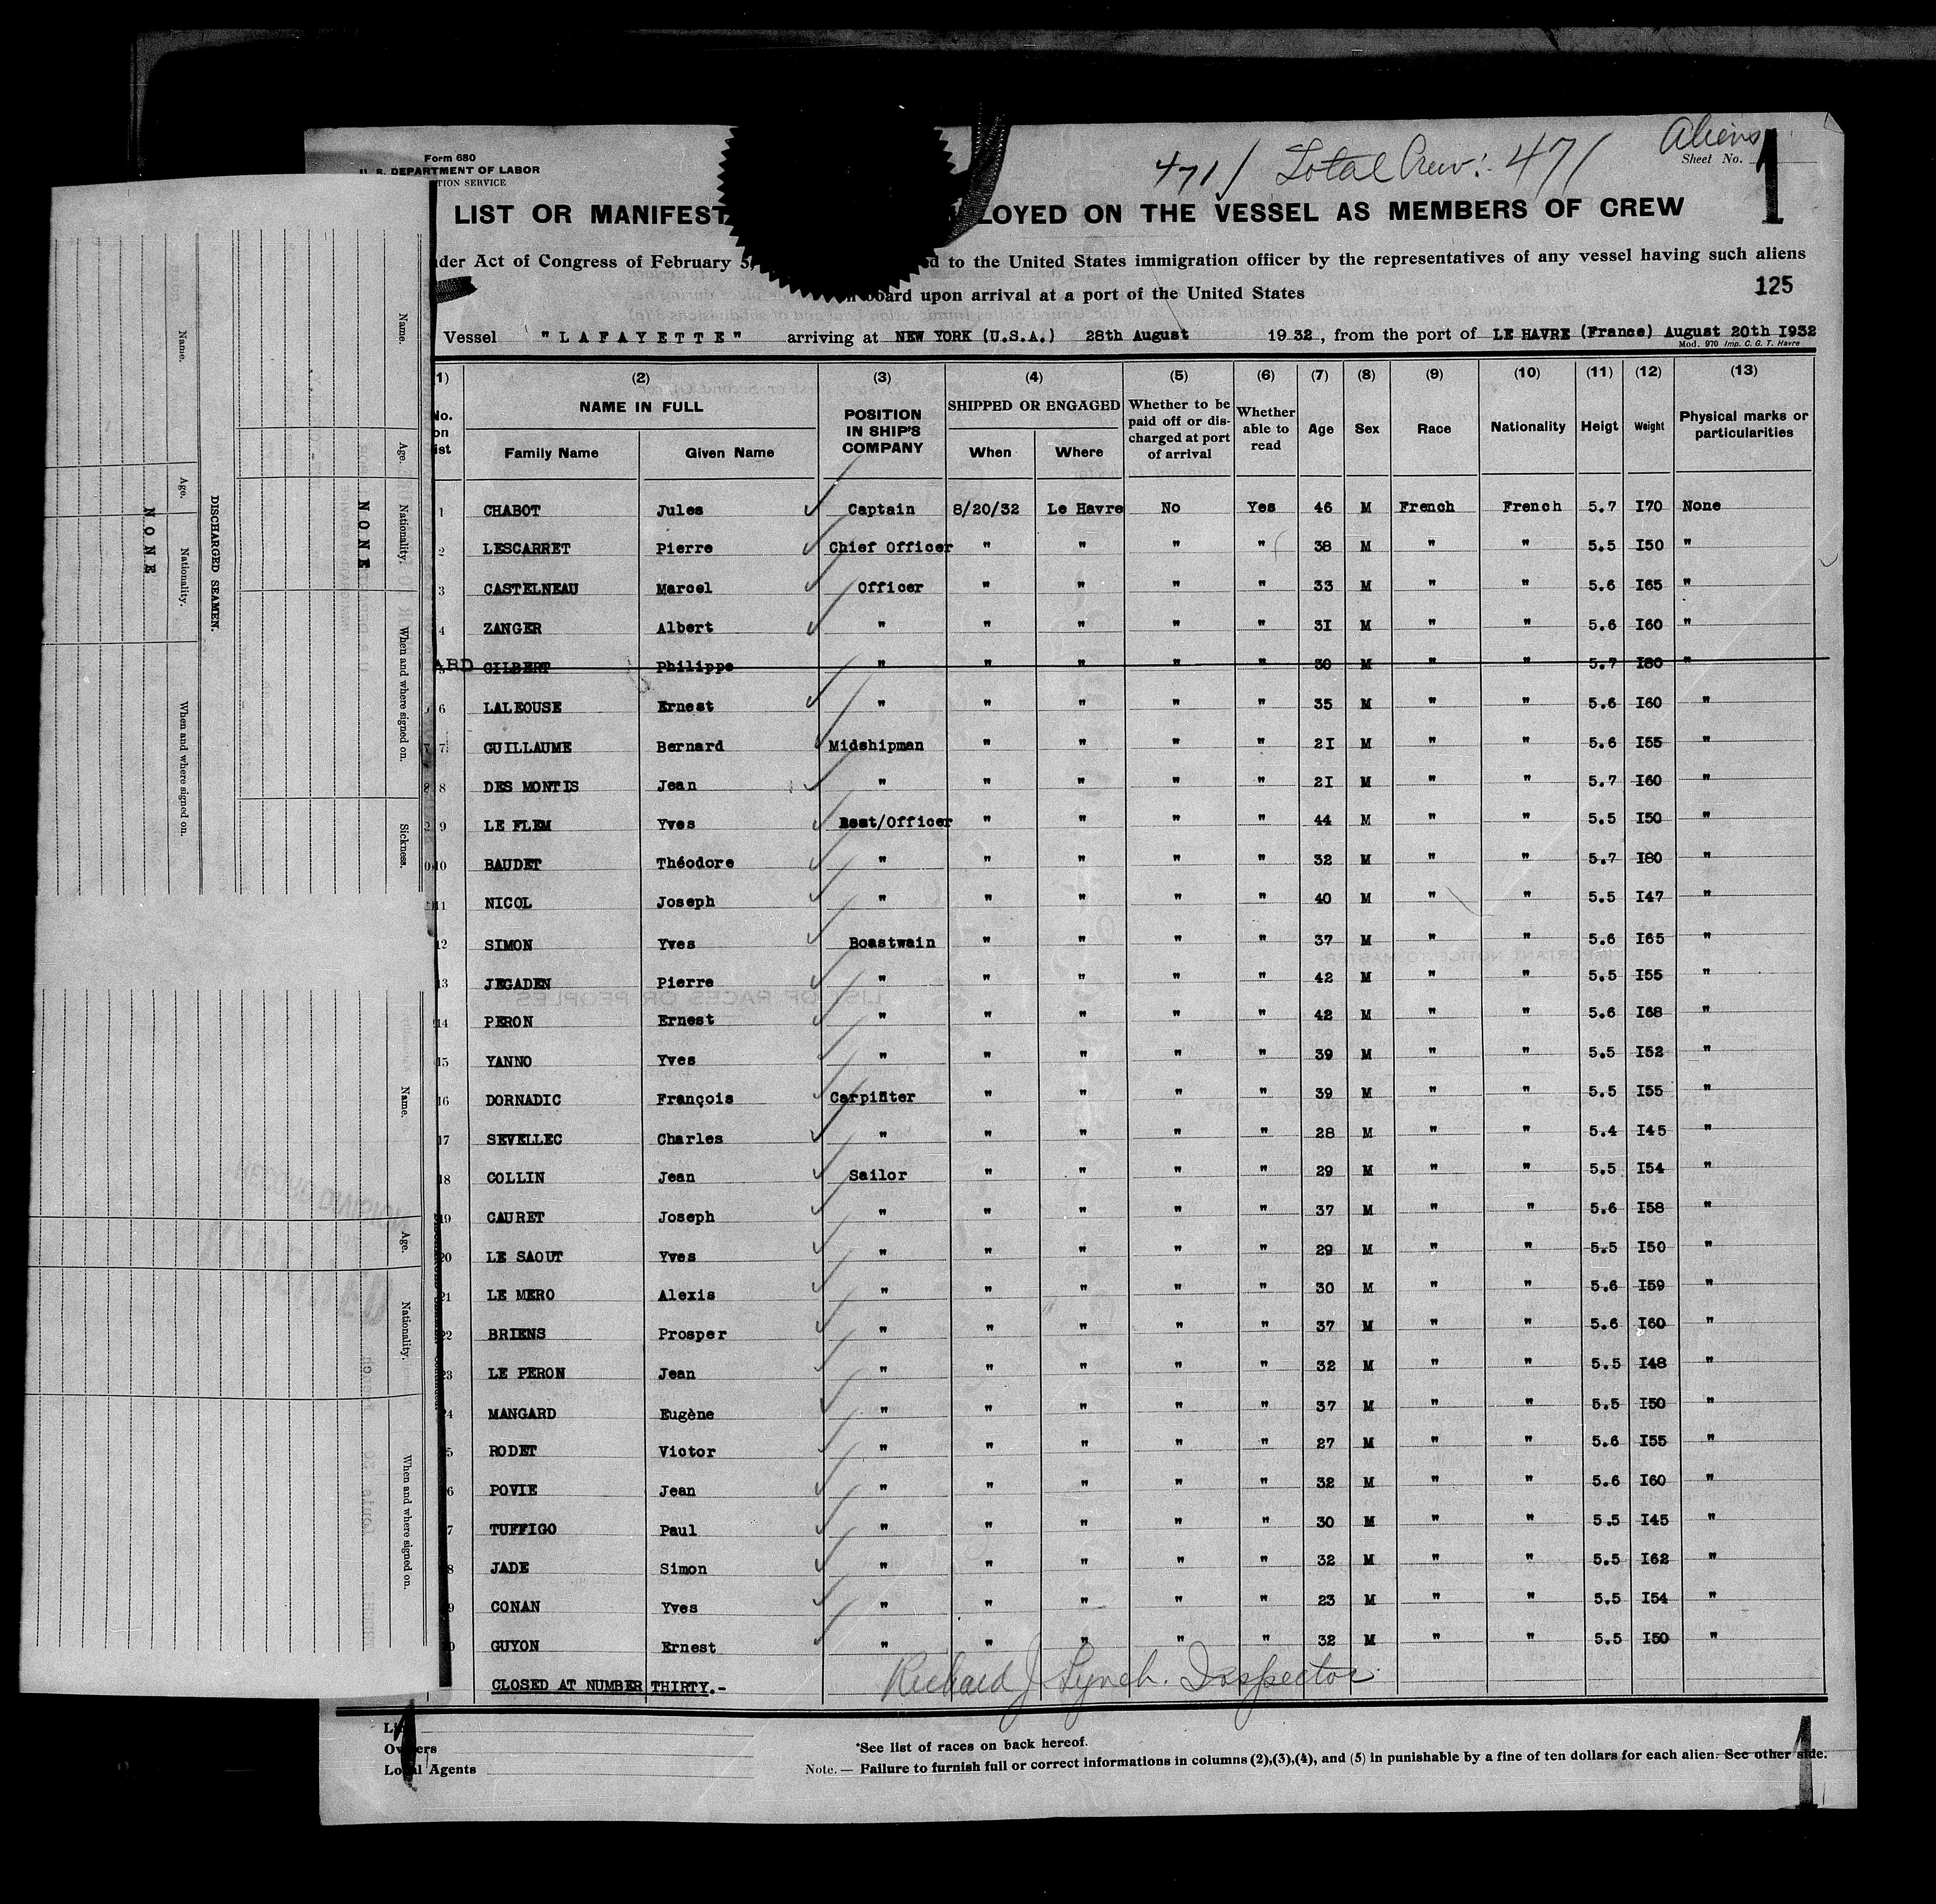 Form 680
U. S. DEPARTMENT OF LABOR
TION SERVICE
471 / Total Crew:- 471
Aliens
Sheet No. 1
LIST OR MANIFEST LOYED ON THE VESSEL AS MEMBERS OF CREW
der Act of Congress of February 5, d to the United States immigration officer by the representatives of any vessel having such aliens
board upon arrival at a port of the United States
125
Vessel "LAFAYETTE" arriving at NEW YORK (U.S.A.) 28th August 1932, from the port of LE HAVRE (France) August 20th I932
Mod. 970 Imp. C. G. T. Havre
(1) (2) (3) (4) (5) (6) (7) (8) (9) (10) (11) (12) (13)
No. on list NAME IN FULL POSITION IN SHIP'S COMPANY SHIPPED OR ENGAGED Whether to be paid off or discharged at port of arrival Whether able to read Age Sex Race Nationality Heigt Weight Physical marks or particularities
Family Name Given Name When Where
1 CHABOT Jules Captain 8/20/32 Le Havre No Yes 46 M French French 5.7 I70 None
2 LESCARRET Pierre Chief Officer " " " " 38 M " " 5.5 I50 "
3 CASTELNEAU Marcel Officer " " " " 33 M " " 5.6 I65 "
4 ZANGER Albert " " " " " 3I M " " 5.6 I60 "
ARD GILBERT Philippe " " " " " 30 M " " 5.7 I80 "
6 LALEOUSE Ernest " " " " " 35 M " " 5.6 I60 "
7 GUILLAUME Bernard Midshipman " " " " 2I M " " 5.6 I55 "
8 DES MONTIS Jean " " " " " 2I M " " 5.7 I60 "
9 LE FLEM Yves /Officer " " " " 44 M " " 5.5 I50 "
10 BAUDET Théodore " " " " " 32 M " " 5.7 I80 "
11 NICOL Joseph " " " " " 40 M " " 5.5 I47 "
12 SIMON Yves Boastwain " " " " 37 M " " 5.6 I65 "
13 JEGADEN Pierre " " " " " 42 M " " 5.5 I55 "
14 PERON Ernest " " " " " 42 M " " 5.6 I68 "
15 YANNO Yves " " " " " 39 M " " 5.5 I52 "
16 DORNADIC François Carpinter " " " " 39 M " " 5.5 I55 "
17 SEVELLEC Charles " " " " " 28 M " " 5.4 I45 "
18 COLLIN Jean Sailor " " " " 29 M " " 5.5 I54 "
19 CAURET Joseph " " " " " 37 M " " 5.6 I58 "
20 LE SAOUT Yves " " " " " 29 M " " 5.5 I50 "
21 LE MERO Alexis " " " " " 30 M " " 5.6 I59 "
22 BRIENS Prosper " " " " " 37 M " " 5.6 I60 "
23 LE PERON Jean " " " " " 32 M " " 5.5 I48 "
4 MANGARD Eugène " " " " " 37 M " " 5.5 I50 "
5 RODET Victor " " " " " 27 M " " 5.6 I55 "
6 POVIE Jean " " " " " 32 M " " 5.6 I60 "
7 TUFFIGO Paul " " " " " 30 M " " 5.5 I45 "
8 JADE Simon " " " " " 32 M " " 5.5 I62 "
9 CONAN Yves " " " " " 23 M " " 5.5 I54 "
0 GUYON Ernest " " " " " 32 M " " 5.5 I50 "
CLOSED AT NUMBER THIRTY.-
Richard J Lynch. Inspector
Line
Owners
Local Agents
*See list of races on back hereof.
Note. — Failure to furnish full or correct informations in columns (2),(3),(4), and (5) in punishable by a fine of ten dollars for each alien. See other side.
1
Name. Age. Nationality. When and where signed on. Sickness.
NONE
DISCHARGED SEAMEN.
Name. Age. Nationality. When and where signed on.
NONE
Name. Age. Nationality. When and where signed on.